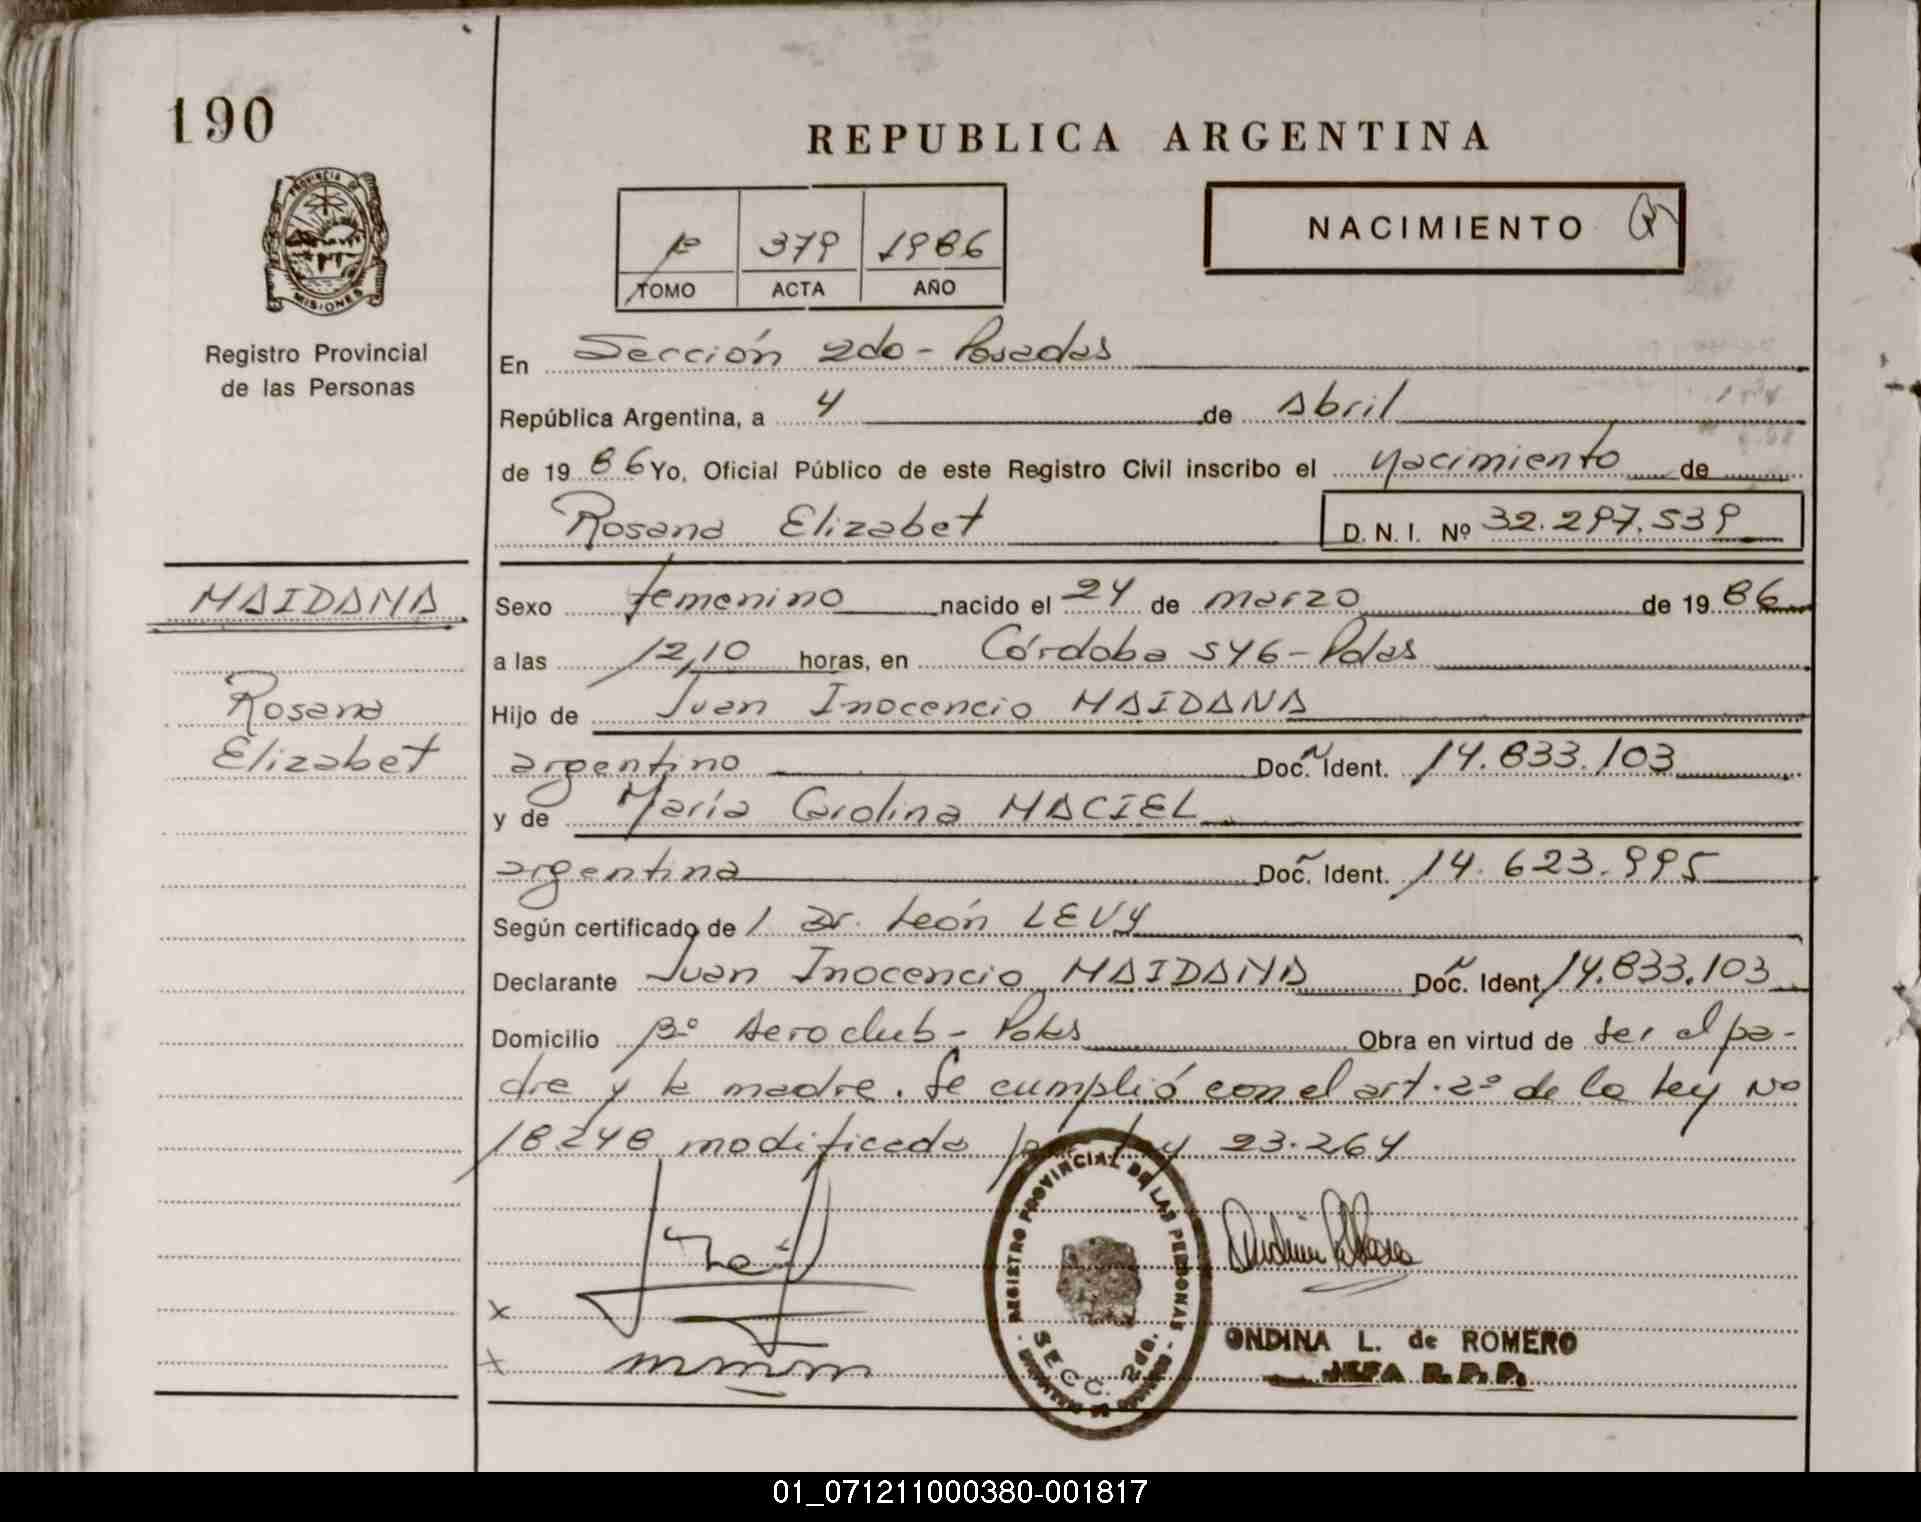 190
REPUBLICA ARGENTINA
PROVINCIA DE
MISIONES
Registro Provincial
de las Personas
1º 379 1986
TOMO ACTA AÑO
NACIMIENTO
En Sección 2da - Posadas
República Argentina, a 4 de Abril
de 19 86 Yo, Oficial Público de este Registro Civil inscribo el nacimiento de
Rosana Elizabet D. N. I. Nº 32.297.539
MAIDANA
Rosana
Elizabet
Sexo femenino nacido el 24 de marzo de 19 86
a las 12,10 horas, en Córdoba 546 - Pdas
Hijo de Juan Inocencio MAIDANA
argentino Doc. Ident. 14.833.103
y de María Carolina MACIEL
argentina Doc. Ident. 14.623.995
Según certificado de Dr. León LEVY
Declarante Juan Inocencio MAIDANA Doc. Ident. 14.833.103
Domicilio Bº Aeroclub - Pdas Obra en virtud de ser el pa-
dre y la madre. Se cumplió con el art. 2º de la Ley Nº
18248 modificada por Ley 23.264
REGISTRO PROVINCIAL DE LAS PERSONAS
SECC. 2da.
x
x
ONDINA L. de ROMERO
JEFA R.P.P.
01_071211000380-001817